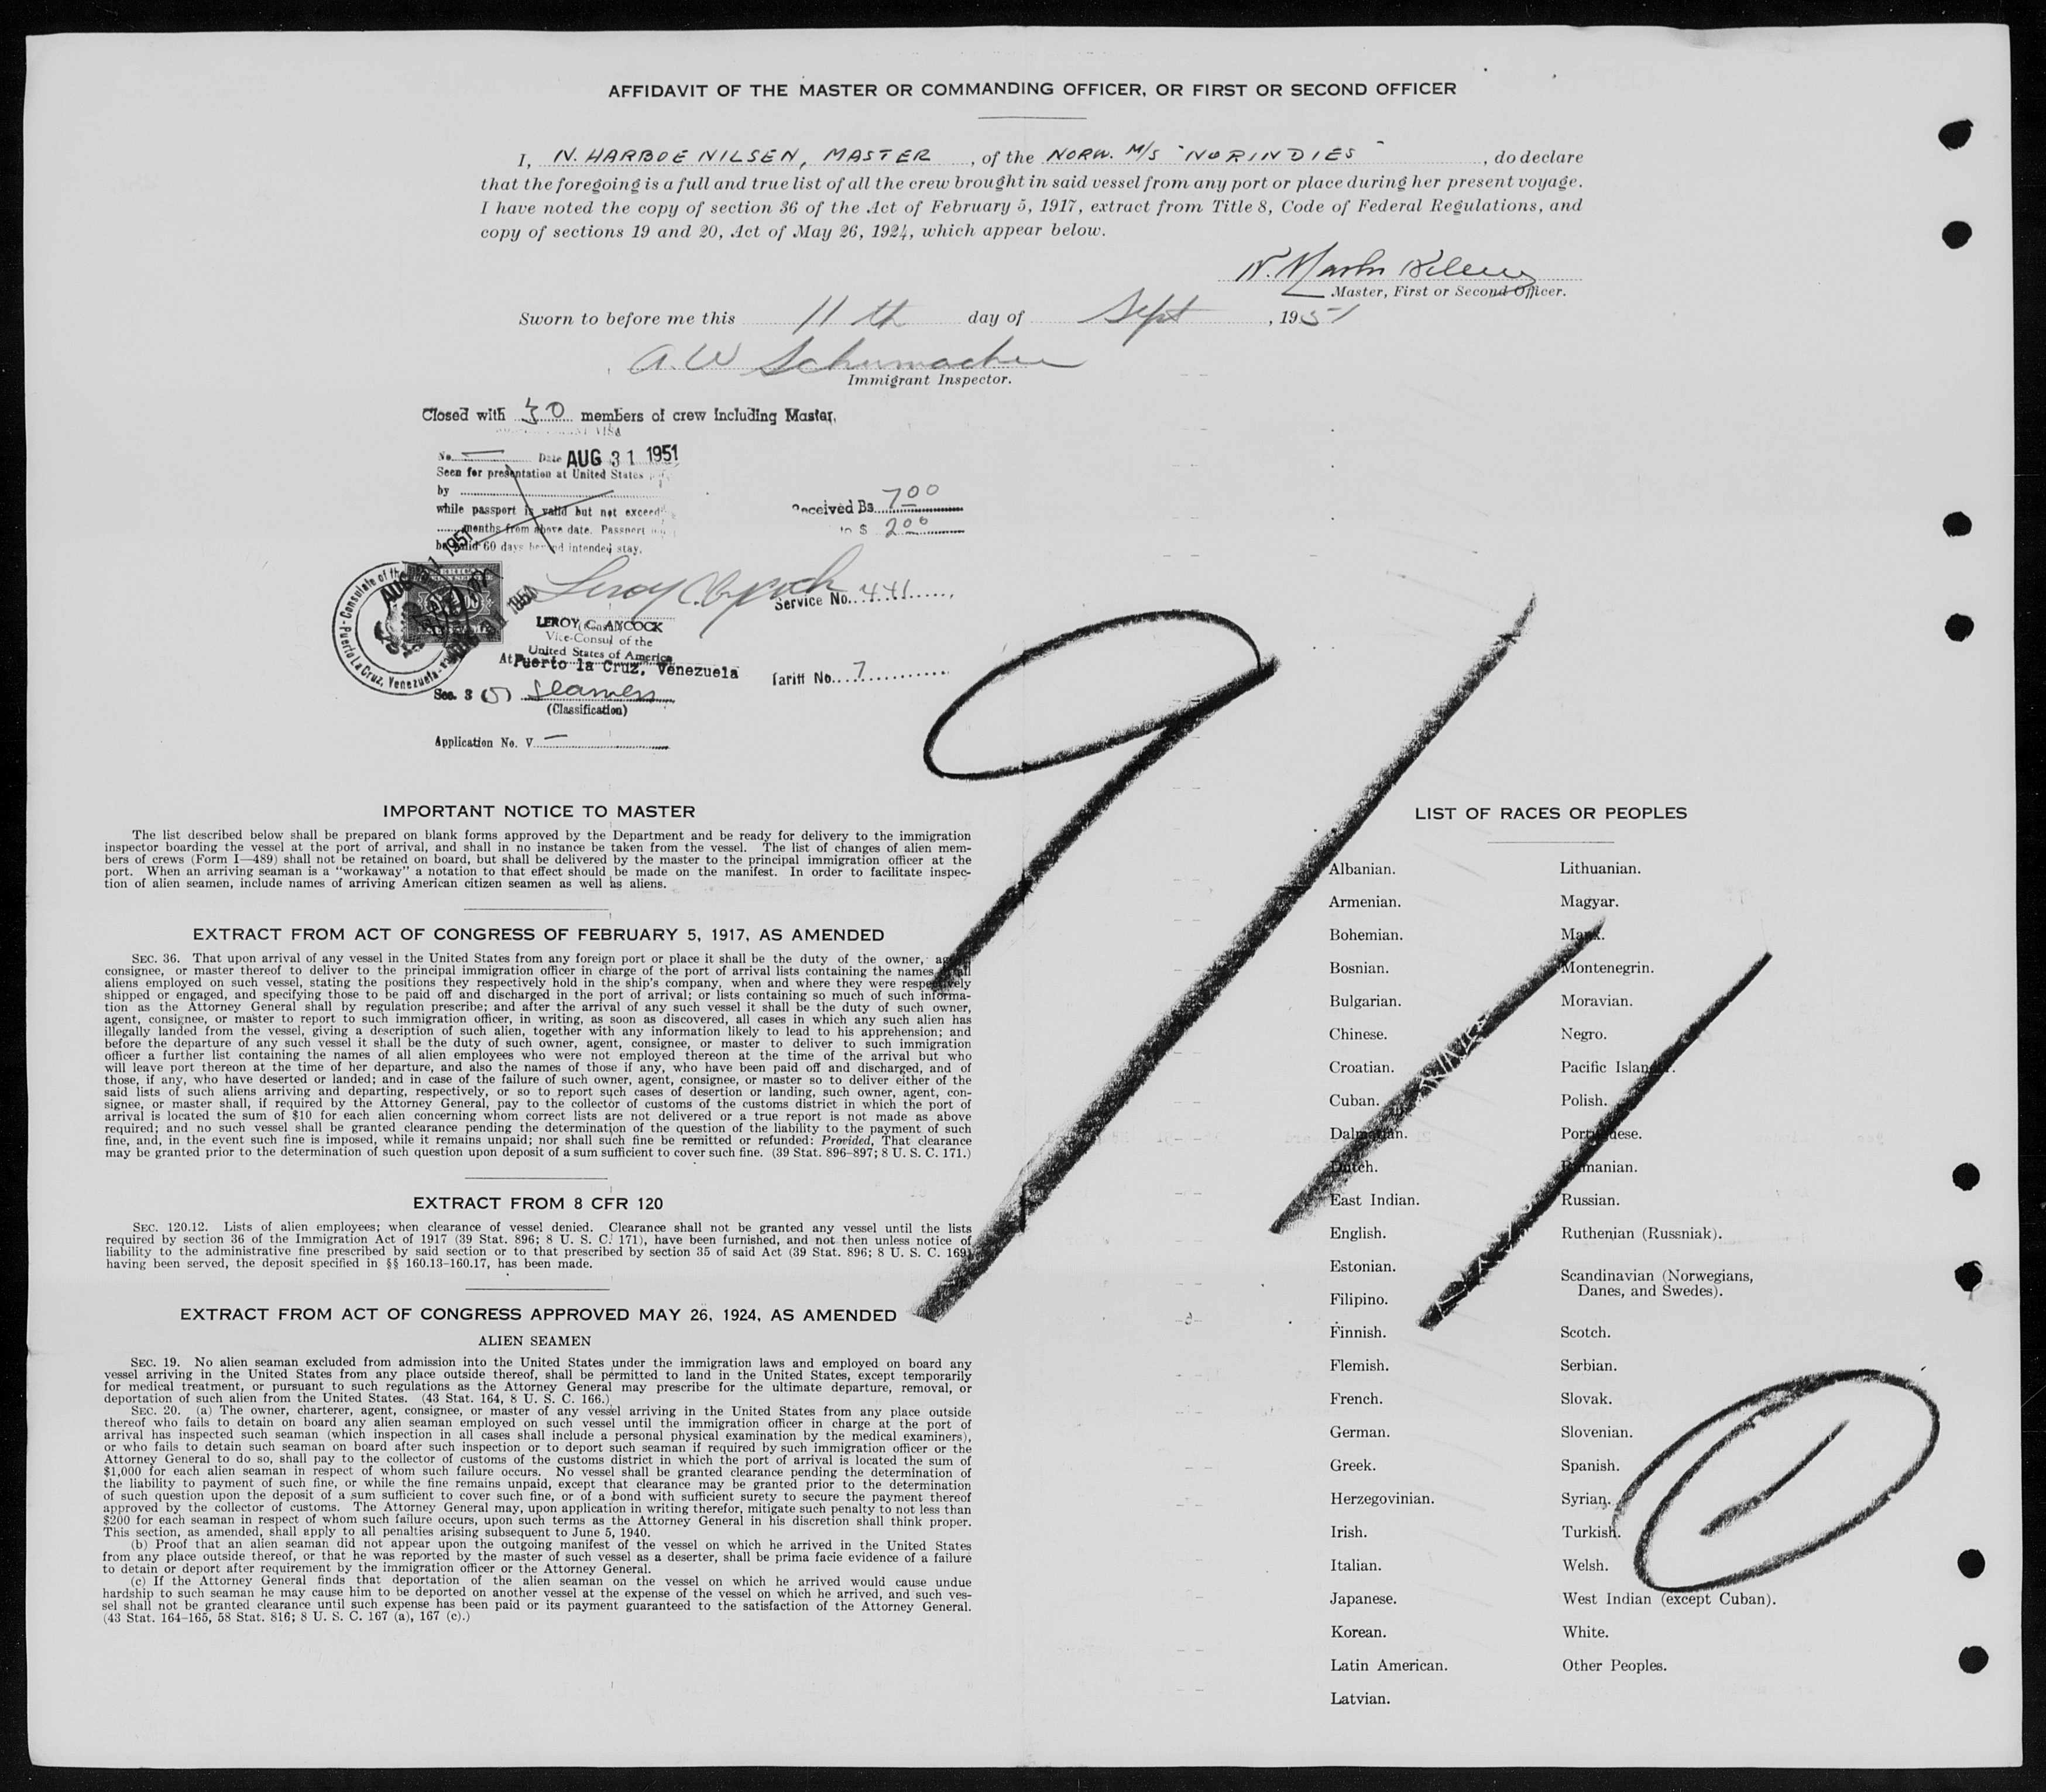 AFFIDAVIT OF THE MASTER OR COMMANDING OFFICER, OR FIRST OR SECOND OFFICER
I, N. HARBOE NILSEN, MASTER, of the NORW. M/S "NORINDIES", do declare
that the foregoing is a full and true list of all the crew brought in said vessel from any port or place during her present voyage.
I have noted the copy of section 36 of the Act of February 5, 1917, extract from Title 8, Code of Federal Regulations, and
copy of sections 19 and 20, Act of May 26, 1924, which appear below.
Master, First or Second Officer.
Sworn to before me this 11th day of Sept, 1951
A. W Schumacher
Immigrant Inspector.
Closed with 30 members of crew including Master.
No. — Date AUG 31 1951
Seen for presentation at United States
by
while passport is valid but not exceed
months from above date. Passport
be valid 60 days beyond intended stay.
Received Bs. 7.00
$ 2.00
Service No. 441
LEROY C. AYCOCK
Vice-Consul of the
United States of America
At Puerto la Cruz, Venezuela
Tariff No. 7
Sec. 3 (5) Seamen
(Classification)
Application No. V —
IMPORTANT NOTICE TO MASTER
The list described below shall be prepared on blank forms approved by the Department and be ready for delivery to the immigration
inspector boarding the vessel at the port of arrival, and shall in no instance be taken from the vessel. The list of changes of alien mem-
bers of crews (Form I—489) shall not be retained on board, but shall be delivered by the master to the principal immigration officer at the
port. When an arriving seaman is a "workaway" a notation to that effect should be made on the manifest. In order to facilitate inspec-
tion of alien seamen, include names of arriving American citizen seamen as well as aliens.
EXTRACT FROM ACT OF CONGRESS OF FEBRUARY 5, 1917, AS AMENDED
SEC. 36. That upon arrival of any vessel in the United States from any foreign port or place it shall be the duty of the owner, agent,
consignee, or master thereof to deliver to the principal immigration officer in charge of the port of arrival lists containing the names of all
aliens employed on such vessel, stating the positions they respectively hold in the ship's company, when and where they were respectively
shipped or engaged, and specifying those to be paid off and discharged in the port of arrival; or lists containing so much of such informa-
tion as the Attorney General shall by regulation prescribe; and after the arrival of any such vessel it shall be the duty of such owner,
agent, consignee, or master to report to such immigration officer, in writing, as soon as discovered, all cases in which any such alien has
illegally landed from the vessel, giving a description of such alien, together with any information likely to lead to his apprehension; and
before the departure of any such vessel it shall be the duty of such owner, agent, consignee, or master to deliver to such immigration
officer a further list containing the names of all alien employees who were not employed thereon at the time of the arrival but who
will leave port thereon at the time of her departure, and also the names of those if any, who have been paid off and discharged, and of
those, if any, who have deserted or landed; and in case of the failure of such owner, agent, consignee, or master so to deliver either of the
said lists of such aliens arriving and departing, respectively, or so to report such cases of desertion or landing, such owner, agent, con-
signee, or master shall, if required by the Attorney General, pay to the collector of customs of the customs district in which the port of
arrival is located the sum of $10 for each alien concerning whom correct lists are not delivered or a true report is not made as above
required; and no such vessel shall be granted clearance pending the determination of the question of the liability to the payment of such
fine, and, in the event such fine is imposed, while it remains unpaid; nor shall such fine be remitted or refunded: Provided, That clearance
may be granted prior to the determination of such question upon deposit of a sum sufficient to cover such fine. (39 Stat. 896–897; 8 U. S. C. 171.)
EXTRACT FROM 8 CFR 120
SEC. 120.12. Lists of alien employees; when clearance of vessel denied. Clearance shall not be granted any vessel until the lists
required by section 36 of the Immigration Act of 1917 (39 Stat. 896; 8 U. S. C. 171), have been furnished, and not then unless notice of
liability to the administrative fine prescribed by said section or to that prescribed by section 35 of said Act (39 Stat. 896; 8 U. S. C. 169)
having been served, the deposit specified in §§ 160.13–160.17, has been made.
EXTRACT FROM ACT OF CONGRESS APPROVED MAY 26, 1924, AS AMENDED
ALIEN SEAMEN
SEC. 19. No alien seaman excluded from admission into the United States under the immigration laws and employed on board any
vessel arriving in the United States from any place outside thereof, shall be permitted to land in the United States, except temporarily
for medical treatment, or pursuant to such regulations as the Attorney General may prescribe for the ultimate departure, removal, or
deportation of such alien from the United States. (43 Stat. 164, 8 U. S. C. 166.)
SEC. 20. (a) The owner, charterer, agent, consignee, or master of any vessel arriving in the United States from any place outside
thereof who fails to detain on board any alien seaman employed on such vessel until the immigration officer in charge at the port of
arrival has inspected such seaman (which inspection in all cases shall include a personal physical examination by the medical examiners),
or who fails to detain such seaman on board after such inspection or to deport such seaman if required by such immigration officer or the
Attorney General to do so, shall pay to the collector of customs of the customs district in which the port of arrival is located the sum of
$1,000 for each alien seaman in respect of whom such failure occurs. No vessel shall be granted clearance pending the determination of
the liability to payment of such fine, or while the fine remains unpaid, except that clearance may be granted prior to the determination
of such question upon the deposit of a sum sufficient to cover such fine, or of a bond with sufficient surety to secure the payment thereof
approved by the collector of customs. The Attorney General may, upon application in writing therefor, mitigate such penalty to not less than
$200 for each seaman in respect of whom such failure occurs, upon such terms as the Attorney General in his discretion shall think proper.
This section, as amended, shall apply to all penalties arising subsequent to June 5, 1940.
(b) Proof that an alien seaman did not appear upon the outgoing manifest of the vessel on which he arrived in the United States
from any place outside thereof, or that he was reported by the master of such vessel as a deserter, shall be prima facie evidence of a failure
to detain or deport after requirement by the immigration officer or the Attorney General.
(c) If the Attorney General finds that deportation of the alien seaman on the vessel on which he arrived would cause undue
hardship to such seaman he may cause him to be deported on another vessel at the expense of the vessel on which he arrived, and such ves-
sel shall not be granted clearance until such expense has been paid or its payment guaranteed to the satisfaction of the Attorney General.
(43 Stat. 164–165, 58 Stat. 816; 8 U. S. C. 167 (a), 167 (c).)
LIST OF RACES OR PEOPLES
Albanian.
Armenian.
Bohemian.
Bosnian.
Bulgarian.
Chinese.
Croatian.
Cuban.
Dalmatian.
Dutch.
East Indian.
English.
Estonian.
Filipino.
Finnish.
Flemish.
French.
German.
Greek.
Herzegovinian.
Irish.
Italian.
Japanese.
Korean.
Latin American.
Latvian.
Lithuanian.
Magyar.
Manx.
Montenegrin.
Moravian.
Negro.
Pacific Islander.
Polish.
Portuguese.
Rumanian.
Russian.
Ruthenian (Russniak).
Scandinavian (Norwegians,
Danes, and Swedes).
Scotch.
Serbian.
Slovak.
Slovenian.
Spanish.
Syrian.
Turkish.
Welsh.
West Indian (except Cuban).
White.
Other Peoples.
9/11
1